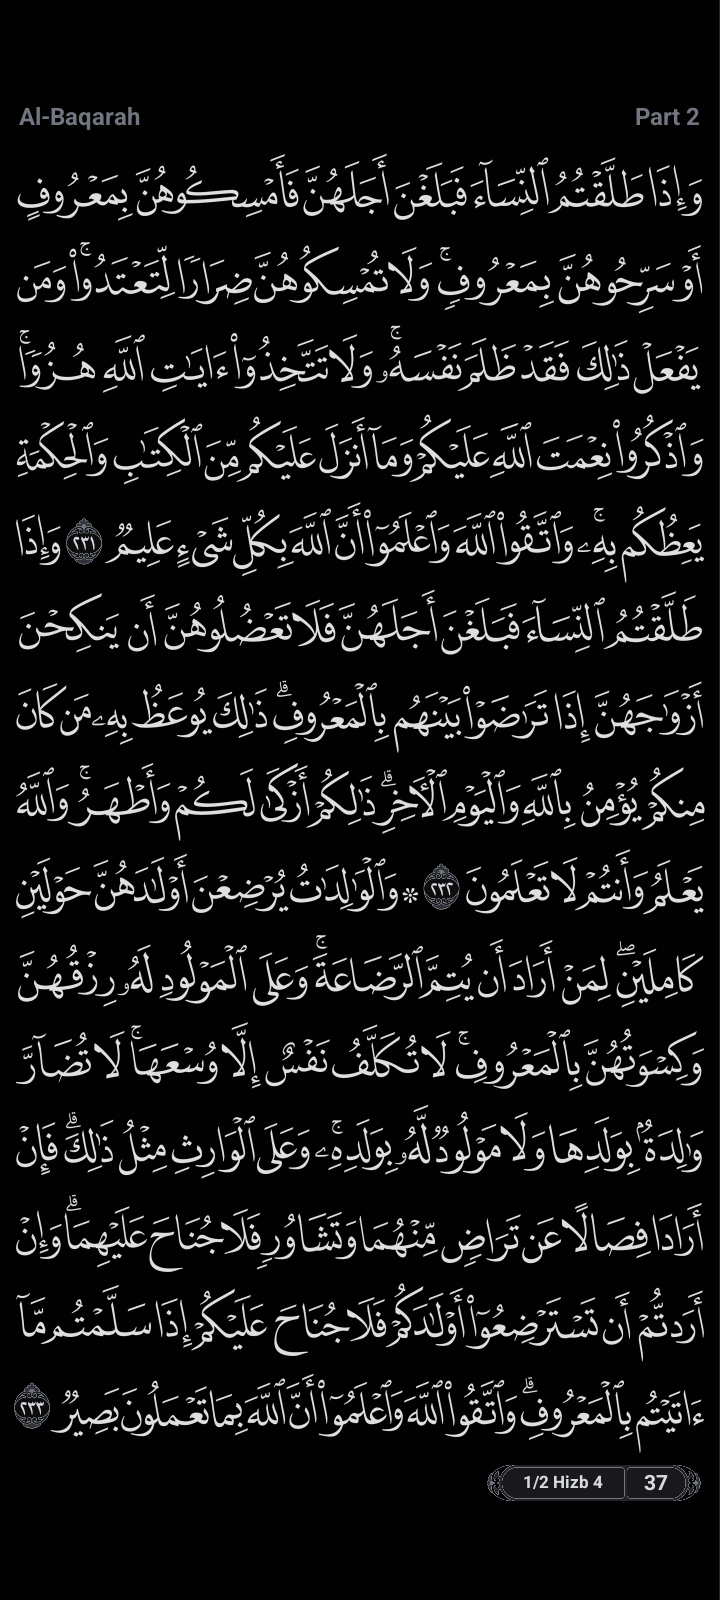 Al-Baqarah Part 2
وَإِذَا طَلَّقْتُمُ ٱلنِّسَآءَ فَبَلَغْنَ أَجَلَهُنَّ فَأَمْسِكُوهُنَّ بِمَعْرُوفٍ
أَوْ سَرِّحُوهُنَّ بِمَعْرُوفٍۚ وَلَا تُمْسِكُوهُنَّ ضِرَارًا لِّتَعْتَدُوا۟ۚ وَمَن
يَفْعَلْ ذَٰلِكَ فَقَدْ ظَلَمَ نَفْسَهُۥۚ وَلَا تَتَّخِذُوٓا۟ ءَايَٰتِ ٱللَّهِ هُزُوًاۚ
وَٱذْكُرُوا۟ نِعْمَتَ ٱللَّهِ عَلَيْكُمْ وَمَآ أَنزَلَ عَلَيْكُم مِّنَ ٱلْكِتَٰبِ وَٱلْحِكْمَةِ
يَعِظُكُم بِهِۦۚ وَٱتَّقُوا۟ ٱللَّهَ وَٱعْلَمُوٓا۟ أَنَّ ٱللَّهَ بِكُلِّ شَىْءٍ عَلِيمٌ ٢٣١ وَإِذَا
طَلَّقْتُمُ ٱلنِّسَآءَ فَبَلَغْنَ أَجَلَهُنَّ فَلَا تَعْضُلُوهُنَّ أَن يَنكِحْنَ
أَزْوَٰجَهُنَّ إِذَا تَرَٰضَوْا۟ بَيْنَهُم بِٱلْمَعْرُوفِۗ ذَٰلِكَ يُوعَظُ بِهِۦ مَن كَانَ
مِنكُمْ يُؤْمِنُ بِٱللَّهِ وَٱلْيَوْمِ ٱلْـَٔاخِرِۗ ذَٰلِكُمْ أَزْكَىٰ لَكُمْ وَأَطْهَرُۚ وَٱللَّهُ
يَعْلَمُ وَأَنتُمْ لَا تَعْلَمُونَ ٢٣٢ * وَٱلْوَٰلِدَٰتُ يُرْضِعْنَ أَوْلَٰدَهُنَّ حَوْلَيْنِ
كَامِلَيْنِۖ لِمَنْ أَرَادَ أَن يُتِمَّ ٱلرَّضَاعَةَۚ وَعَلَى ٱلْمَوْلُودِ لَهُۥ رِزْقُهُنَّ
وَكِسْوَتُهُنَّ بِٱلْمَعْرُوفِۚ لَا تُكَلَّفُ نَفْسٌ إِلَّا وُسْعَهَاۚ لَا تُضَآرَّ
وَٰلِدَةٌۢ بِوَلَدِهَا وَلَا مَوْلُودٌ لَّهُۥ بِوَلَدِهِۦۚ وَعَلَى ٱلْوَارِثِ مِثْلُ ذَٰلِكَۗ فَإِنْ
أَرَادَا فِصَالًا عَن تَرَاضٍ مِّنْهُمَا وَتَشَاوُرٍ فَلَا جُنَاحَ عَلَيْهِمَاۗ وَإِنْ
أَرَدتُّمْ أَن تَسْتَرْضِعُوٓا۟ أَوْلَٰدَكُمْ فَلَا جُنَاحَ عَلَيْكُمْ إِذَا سَلَّمْتُم مَّآ
ءَاتَيْتُم بِٱلْمَعْرُوفِۗ وَٱتَّقُوا۟ ٱللَّهَ وَٱعْلَمُوٓا۟ أَنَّ ٱللَّهَ بِمَا تَعْمَلُونَ بَصِيرٌ ٢٣٣
1/2 Hizb 4 37